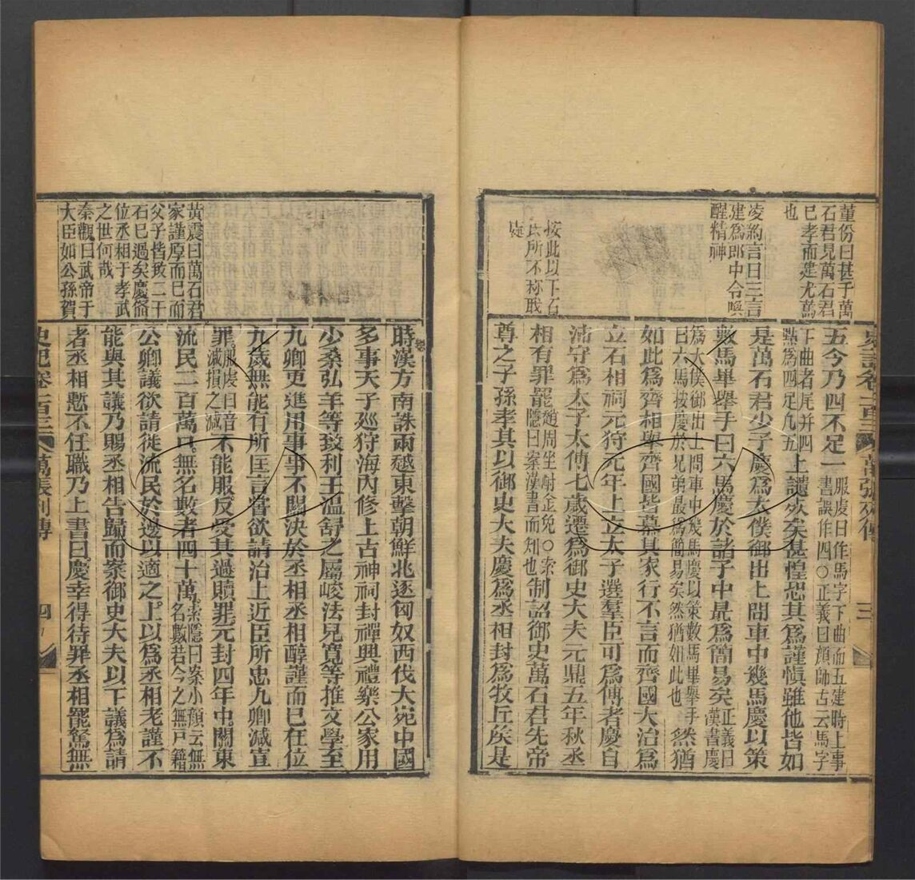 董份曰甚于萬
石君見萬石君
已孝而建尤萬
也
凌約言曰三言
建為郎中令喚
醒精神
按此以下石
史記卷一百三
萬張列傳
三
五今乃四不足一服虔曰作馬字下曲而五建時上事書誤作四○正義曰顏師古云馬字
下曲者尾并四點為四足凡五上譴死矣甚惶恐其為謹慎雖他皆如
是萬石君少子慶為太僕御出上問車中幾馬慶以策
數馬畢舉手曰六馬慶於諸子中最為簡易矣正義曰漢書慶
為太僕御出上問車中幾馬慶以策數馬畢舉手曰六馬按慶於兄弟最為簡易矣然猶如此也然猶
如此為齊相舉齊國皆慕其家行不言而齊國大治為
立石相祠元狩元年上立太子選羣臣可為傅者慶自
沛守為太子太傅七歲遷為御史大夫元鼎五年秋丞
相有罪罷趙周坐酎金免○索隱曰案漢書而知也制詔御史萬石君先帝
尊之子孫孝其以御史大夫慶為丞相封為牧丘侯是
黃震曰萬石君
家謹厚而已而
父子皆致二千
石已過矣慶備
位丞相于孝武
之世何哉
秦觀曰武帝于
大臣如公孫賀
時漢方南誅兩越東擊朝鮮北逐匈奴西伐大宛中國
多事天子廵狩海內修上古神祠封禪興禮樂公家用
少桑弘羊等致利王溫舒之屬峻法兒寬等推文學至
九卿更進用事事不關決於丞相丞相醇謹而已在位
九歲無能有所匡言嘗欲請治上近臣所忠九卿減宣
罪服虔曰音減損之減不能服反受其過贖罪元封四年中關東
流民二百萬口無名數者四十萬索隱曰案小顏云無名數若今之無戶籍
公卿議欲請徙流民於邊以適之上以為丞相老謹不
能與其議乃賜丞相告歸而案御史大夫以下議為請
者丞相慙不任職乃上書曰慶幸得待罪丞相罷駑無
史記卷一百三
萬張列傳
四